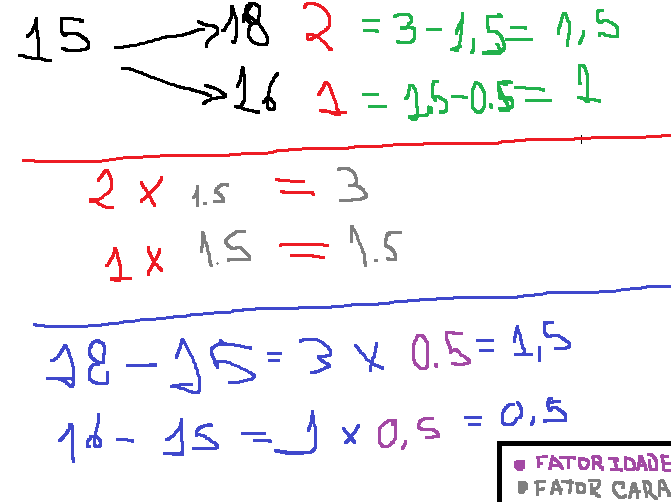 15 → 18 2 = 3 - 1,5 = 1,5
→ 16 1 = 1.5 - 0.5 = 1
2 x 1.5 = 3
1 x 1.5 = 1.5
18 - 15 = 3 x 0.5 = 1,5
16 - 15 = 1 x 0,5 = 0,5
FATOR IDADE
FATOR CARA